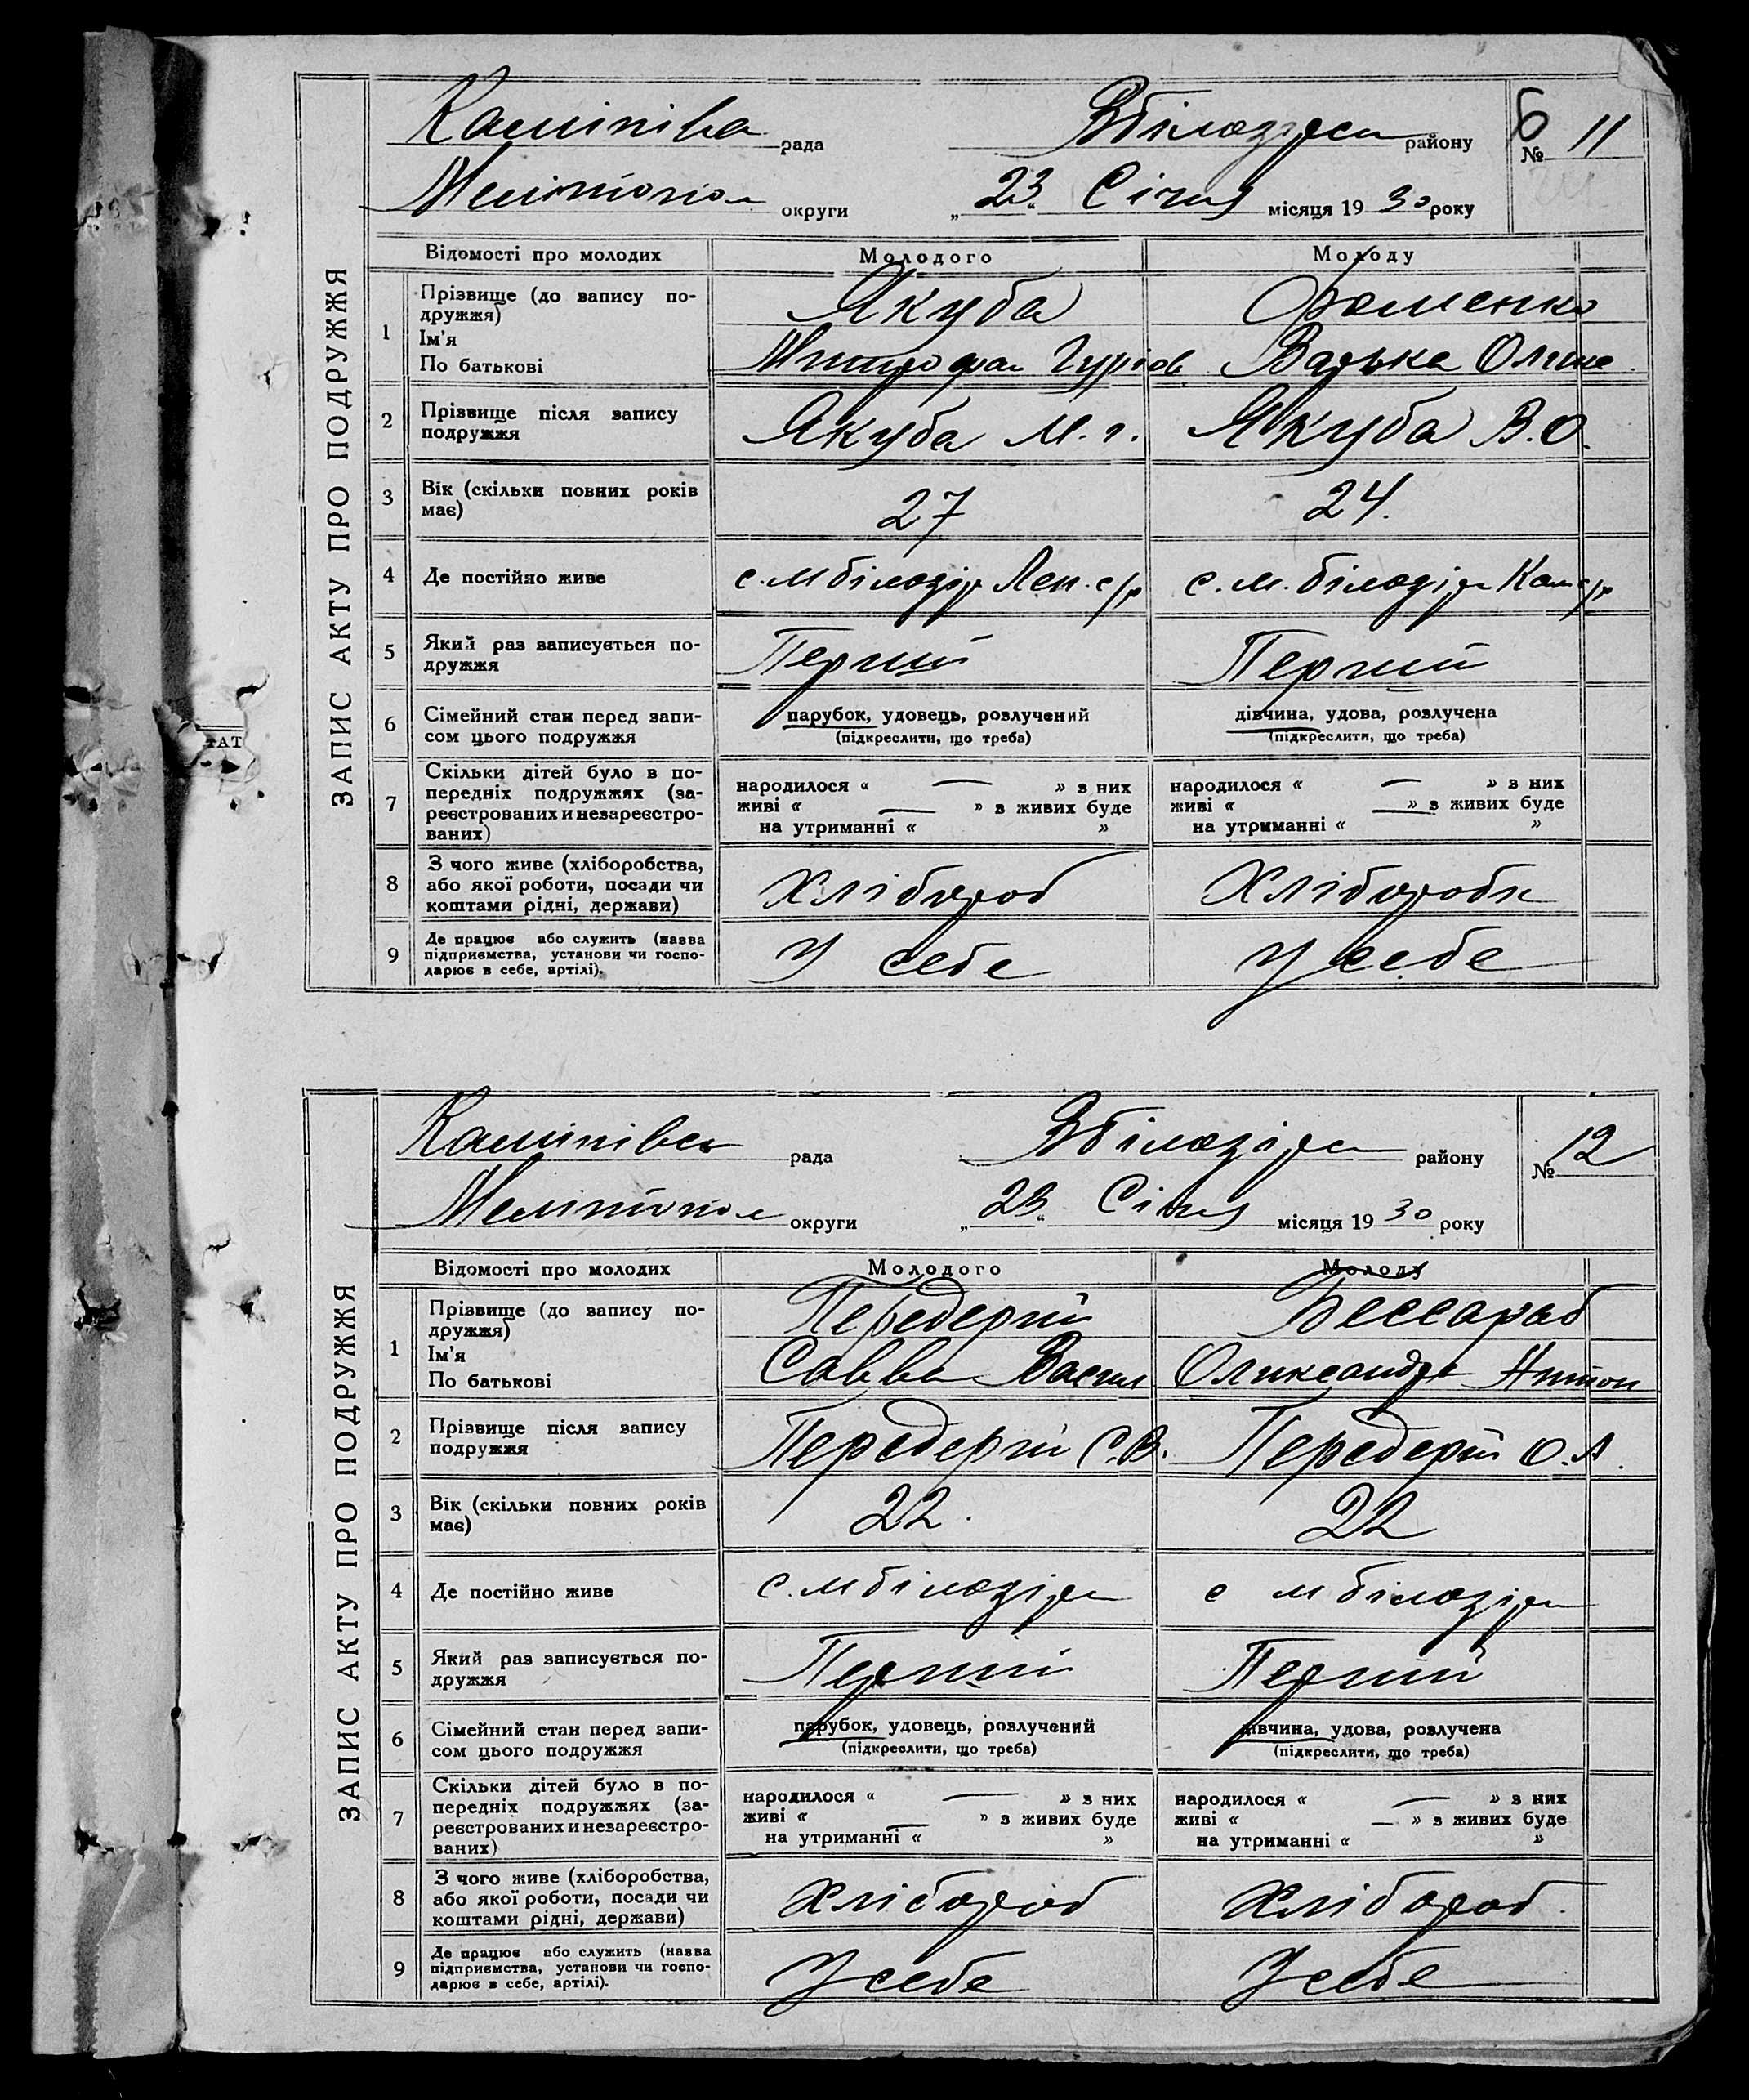 ЗАПИС АКТУ ПРО ПОДРУЖЖЯ
рада Вбілозірськ району № 11
6
Мелітопол округи „23“ Січня місяця 19 30 року
Відомості про молодих Молодого Молоду
1 Прізвище (до запису по-
дружжя) Якуба Фоменко
Ім'я
По батькові Митрофан Гурієв
2 Прізвище після запису
подружжя Якуба М. г. Якуба В.О.
3 Вік (скільки повних років
має) 27 24.
4 Де постійно живе с. м білозір Лен. с/р с. м. білозір Кам с/р
5 Який раз записується по-
дружжя Перший Перший
6 Сімейний стан перед запи-
сом цього подружжя парубок, удовець, розлучений дівчина, удова, розлучена
(підкреслити, що треба) (підкреслити, що треба)
7 Скільки дітей було в по-
передніх подружжях (за-
реєстрованих и незареєстро-
ваних) народилося « — » з них народилося « — » з них
живі « — » з живих буде живі « — » з живих буде
на утриманні « » на утриманні « »
8 З чого живе (хліборобства,
або якої роботи, посади чи
коштами рідні, держави) Хлібороб Хлібороб
9 Де працює або служить (назва
підприємства, установи чи госпо-
дарює в себе, артілі). У себе У себе
ТАТ
ЗАПИС АКТУ ПРО ПОДРУЖЖЯ
рада Вбілозірськ району № 12
Мелітопол округи „23“ Січня місяця 19 30 року
Відомості про молодих Молодого Молоду
1 Прізвище (до запису по-
дружжя) Передерій Бессараб
Ім'я
По батькові Савва Васил Олександра Антон
2 Прізвище після запису
подружжя Передерій С.В. Передерій О.А.
3 Вік (скільки повних років
має) 22. 22
4 Де постійно живе с. м білозірк с м білозірк
5 Який раз записується по-
дружжя Перший Перший
6 Сімейний стан перед запи-
сом цього подружжя парубок, удовець, розлучений дівчина, удова, розлучена
(підкреслити, що треба) (підкреслити, що треба)
7 Скільки дітей було в по-
передніх подружжях (за-
реєстрованих и незареєстро-
ваних) народилося « — » з них народилося « — » з них
живі « — » з живих буде живі « — » з живих буде
на утриманні « » на утриманні « »
8 З чого живе (хліборобства,
або якої роботи, посади чи
коштами рідні, держави) Хлібороб Хлібороб.
9 Де працює або служить (назва
підприємства, установи чи госпо-
дарює в себе, артілі). У себе У себе